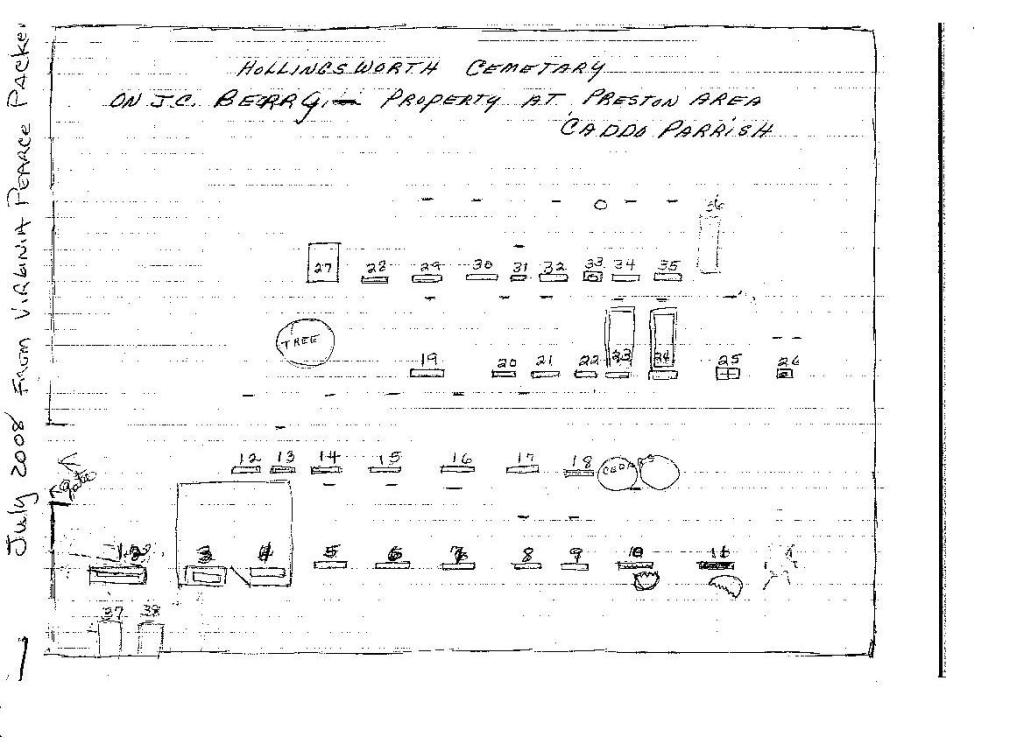 HOLLINGSWORTH CEMETARY
ON J.C. BERRY PROPERTY AT PRESTON AREA
CADDO PARRISH
36
27 28 29 30 31 32 33 34 35
TREE
19 20 21 22 23 24 25 26
12 13 14 15 16 17 18 CEDARS
Gate
1 2 3 4 5 6 7 8 9 10 11
37 38
July 2008 FROM VIRGINIA PEARCE PACKE